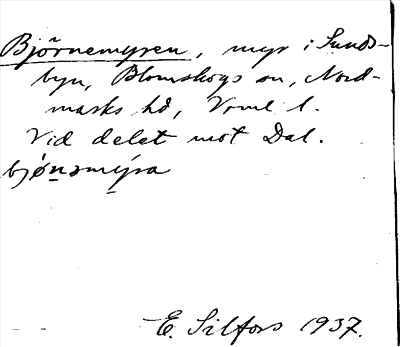 Björnemyren, myr i Sunds-
byn, Blomskogs sn, Nord-
marks hd, Vrml l.
Vid delet mot Dal.
bjö́nəmýra
E. Silfors 1937.